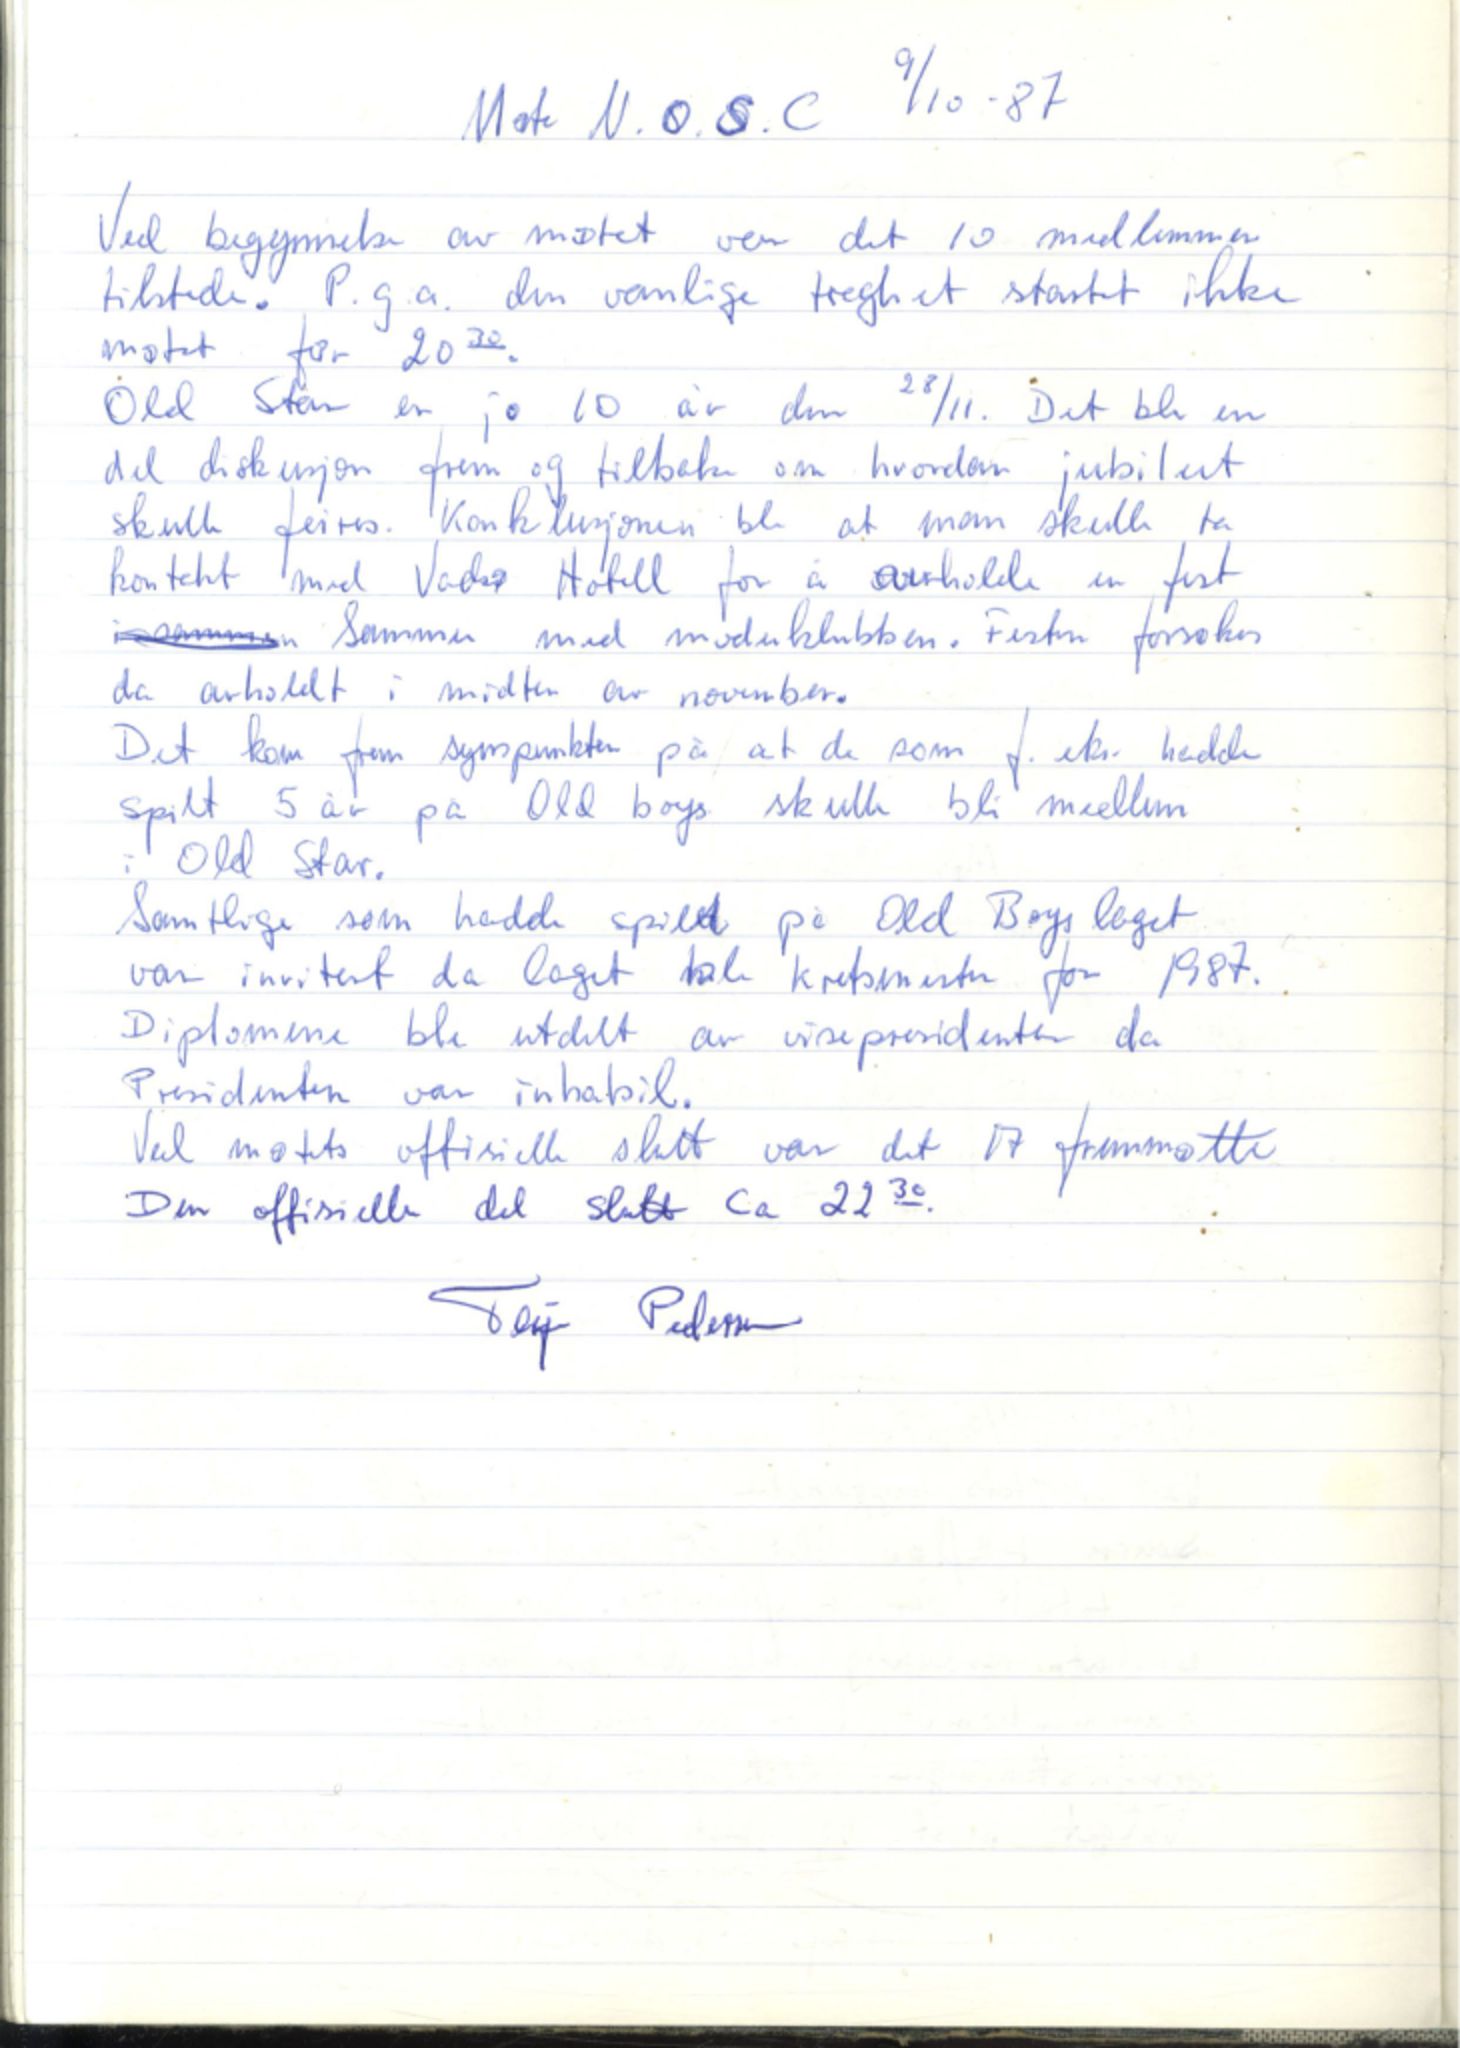 Møte N.O.S.C 9/10-87
Ved begynnelse av møtet var det 10 medlemmer
tilstede. P.g.a. den vanlige treghet startet ikke
møtet før 20 30.
Old Star er jo 10 år den 28/11. Det ble en
del diskusjon frem og tilbake om hvordan jubileet
skulle feires. Konklusjonen ble at man skulle ta
kontakt med Hotell for å avholde en fest
Sammen med moderklubben. Festen forsøkes
da avholdt i midten av november.
Det kom frem synspunkter på at de som f. eks. hadde
spilt 5 år på Old boys skulle bli medlem
i Old Star.
Samtlige som hadde spilt på Old Boys laget
var invitert da laget ble kretsmester for 1987.
Diplomene ble utdelt av visepresidenten da
Presidenten var inhabil.
Ved møtets offisielle slutt var det 17 fremmøtte
Den offisielle del slutt ca 22 30.
Terje Pedersen